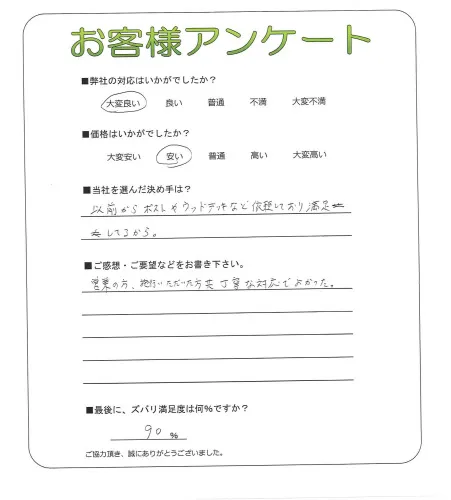 お客様アンケート
■弊社の対応はいかがでしたか？
大変良い 良い 普通 不満 大変不満
■価格はいかがでしたか？
大変安い 安い 普通 高い 大変高い
■当社を選んだ決め手は？
以前からポストやウッドデッキなど依頼しており満足
してるから。
■ご感想・ご要望などをお書き下さい。
営業の方、施行いただいた方共丁寧な対応でよかった。
■最後に、ズバリ満足度は何％ですか？
90 ％
ご協力頂き、誠にありがとうございました。